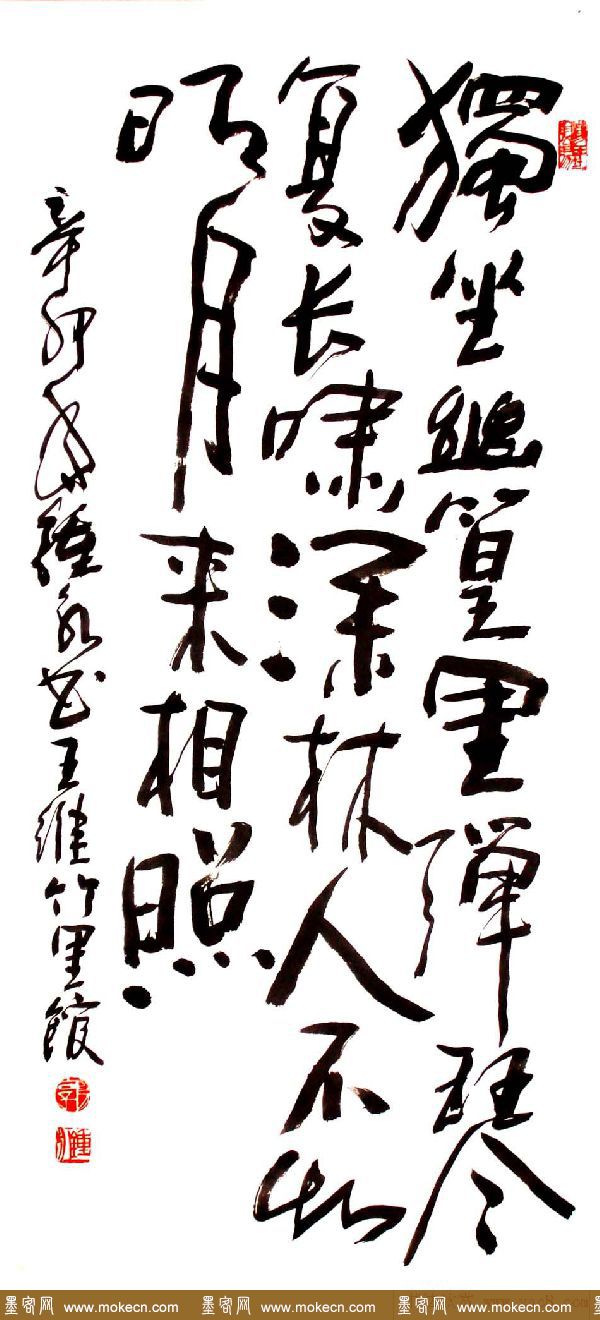 獨坐幽篁里彈琴
复长啸深林人不知
明月来相照
辛卯 鍾 书王维竹里館
墨客网 www.mokecn.com 墨客网 www.mokecn.com 墨客网 www.mokecn.com